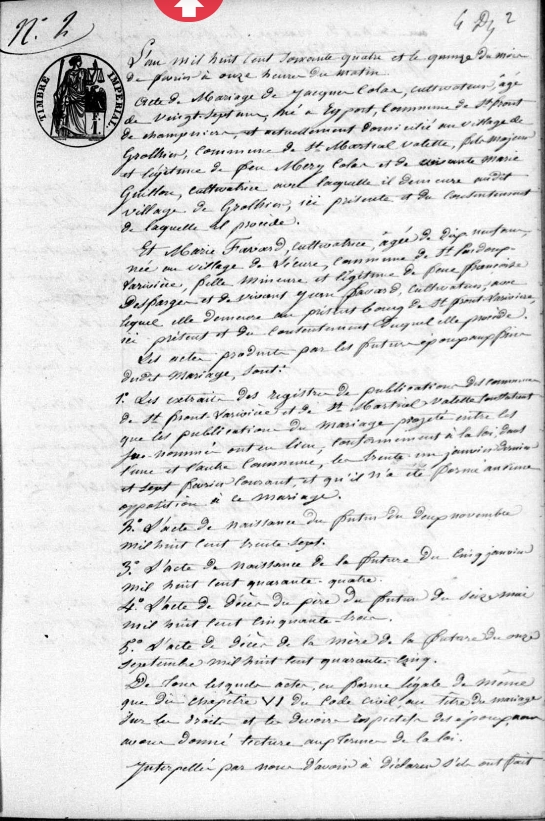 N.° 2
2
TIMBRE IMPÉRIAL
L'an mil huit cent soixante quatre et le quinze du mois
de février à onze heures du matin.
Acte de Mariage de Jacques Colas, cultivateur, âgé
de vingt sept ans, né à, Commune de St front
de champniers, et actuellement domicilié au village de
Grolhier, Commune de St Martial Valette, fils majeur
et légitime de feu Méry Colas et de vivante Marie
Guillou, cultivatrice avec laquelle il demeure audit
village de Grolhier, ici présente et du consentement
de laquelle il procède.
Et Marie Favard, cultivatrice, âgée de dix neuf ans,
née au village de, commune de St Pardoux
, fille mineure et légitime de feue françoise
Desfarges et de vivant Favard, Cultivateur, avec
lequel elle demeure au présent bourg de St front Larivière,
ici présent et du consentement duquel elle procède.
Les actes produits par les futurs époux aux fins
dudit Mariage, sont:
1.° Les extraits des registres de publications des communes
de St front Larivière et de St Martial Valette constatent
que les publications du mariage projeté entre les
sus nommés ont eu lieu, conformément à la loi, dans
l'une et l'autre Commune, les trente un janvier dernier
et sept février courant et qu'il n'a été formé aucune
opposition à ce mariage.
2.° L'acte de naissance du futur du deux novembre
mil huit cent trente sept.
3.° L'acte de naissance de la future du cinq janvier
mil huit cent quarante quatre.
4.° L'acte de décès du père du futur du seize mai
mil huit cent cinquante trois.
5.° L'acte de décès de la mère de la future du onze
septembre mil huit cent quarante cinq.
De tous lesquels actes, en forme légale de même
que du chapitre VI du Code civil, au titre du mariage
sur les droits et les devoirs respectifs des époux, nous
avons donné lecture aux termes de la loi.
Interpellés par nous d'avoir à déclarer s'ils ont fait